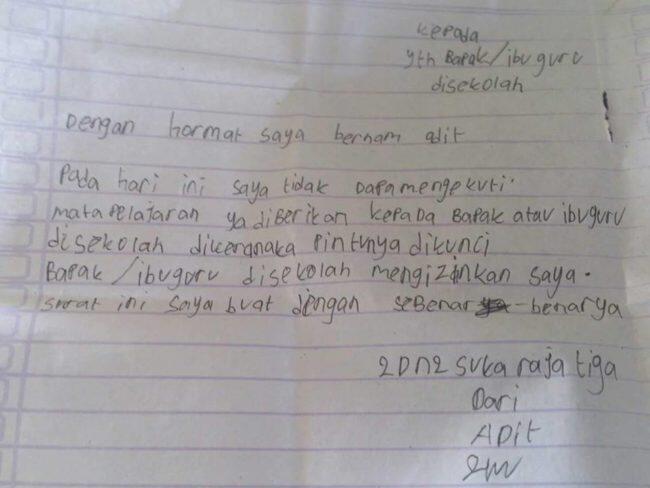 kepada
yth Bapak/ibu guru
disekolah
Dengan hormat saya bernam adit
Pada hari ini saya tidak Dapa mengekuti.
mata pelajaran ya diberikan kepada Bapak atau ibu guru
disekolah dikeranaka pintunya dikunci
Bapak/ibu guru disekolah mengizinkan saya.
surat ini saya buat dengan seBenar-benarya
2Dn2 suka raja tiga
Dari
ADit